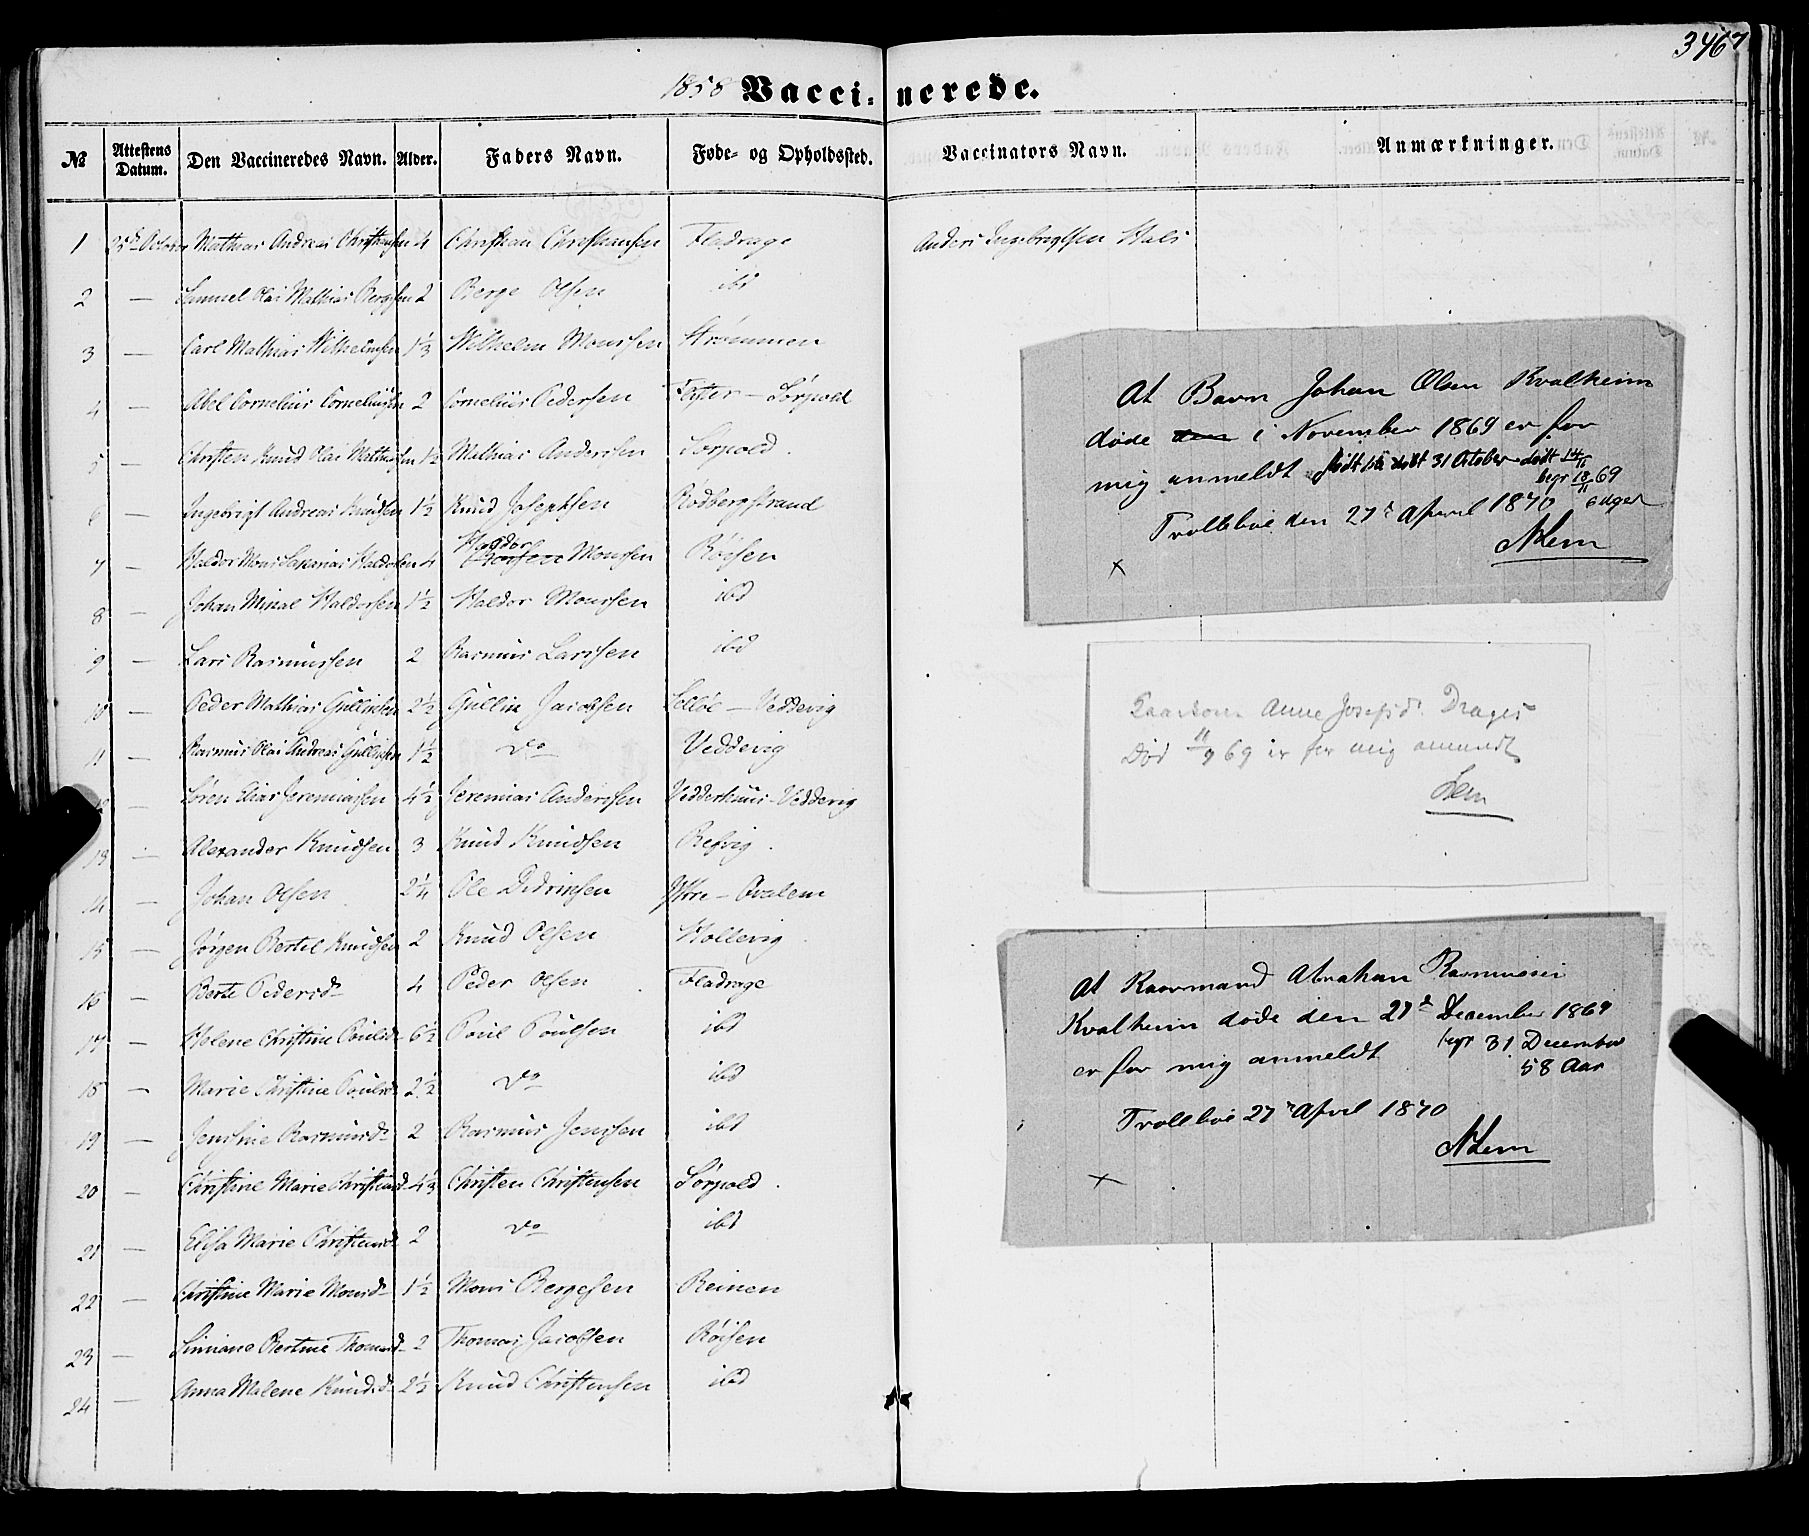 3467
1858 Vaccinerede.
№ Attestens Datum. Den Vaccineredes Navn. Alder. Faders Navn. Føde- og Opholdssted. Vaccinators Navn. Anmærkninger.
1 25de October Mathias Andreas Christiansen 4 Christian Christiansen Fladrage Anders Ingebregtsen Hals
2 — Samuel Olai Mathias Bergesen 2 Berge Olsen ibd
3 — Carl Mathias Wilhelmsen 1⅓ Wilhelm Monssen Strømmen
4 — Abel Cornelius Corneliussen 2 Cornelius Pedersen — Sørpold
5 — Christen Knud Olai Mathiassen 1½ Mathias Anderssen Sørpold.
6 — Ingebrigt Andreas Knudsen 1½ Knud Josephsen Rødbergstrand
7 — Haldor Mons Sakarias Haldorsen 4 Haldor Monssen Røisen
8 — Johan Minal Haldorsen 1½ Haldor Monssen ibd
9 — Lars Rasmussen 2 Rasmus Larssen ibd
10 — Peder Mathias Gullicksen 2½ Gullik Jacobsen Selløe — Veddevig
11 — Rasmus Olai Andreas Gullicksen 1½ do Veddevig
12 Søren Elias Jeremiassen 4½ Jeremias Anderssen Vedderhuus - Veddevig
13 — Alexander Knudsen 3 Knud Knudsen Refvig.
14 — Johan Olsen 2¼ Ole Didriksen Ytre — Qvalem
15 — Jørgen Bertel Knudsen 2 Knud Olsen Hollevig
16 — Berte Pedersd. 4 Peder Olsen Fladrage
17 — Helene Christine Poulsd. 6½ Poul Poulsen ibd
18 — Marie Christine Poulsd. 2½ do ibd
19 — Jensine Rasmusd. 2 Rasmus Jenssen ibd
20 — Christine Marie Christensd. 4⅓ Christen Christensen Sørpold.
21 — Elisa Marie Christensd. 2 do ibd
22 — Christine Marie Monsd. 1½ Mons Bergesen Reinen
23 — Siniane Bertine Thomasd. 2 Thomas Jacobsen Røisen
24 — Anna Malene Knudsd. 2½ Knud Christensen ibd
At Barn Johan Olsen Kvalheim
døde den i November 1869 er for
mig anmeldt født 31 October død 14/11
begr 18/11 69
Trollebøe den 27de April 1870 2 uger
NLem
x
Anne Josefsd. Drages
Død 11/9 69 er for mig anmeldt
Lem
At Kaarmand Abraham Rasmussen
Kvalheim døde den 27de December 1869
er for mig anmeldt begr 31 December
58 Aar
Trollebøe 27de April 1870
NLem
x